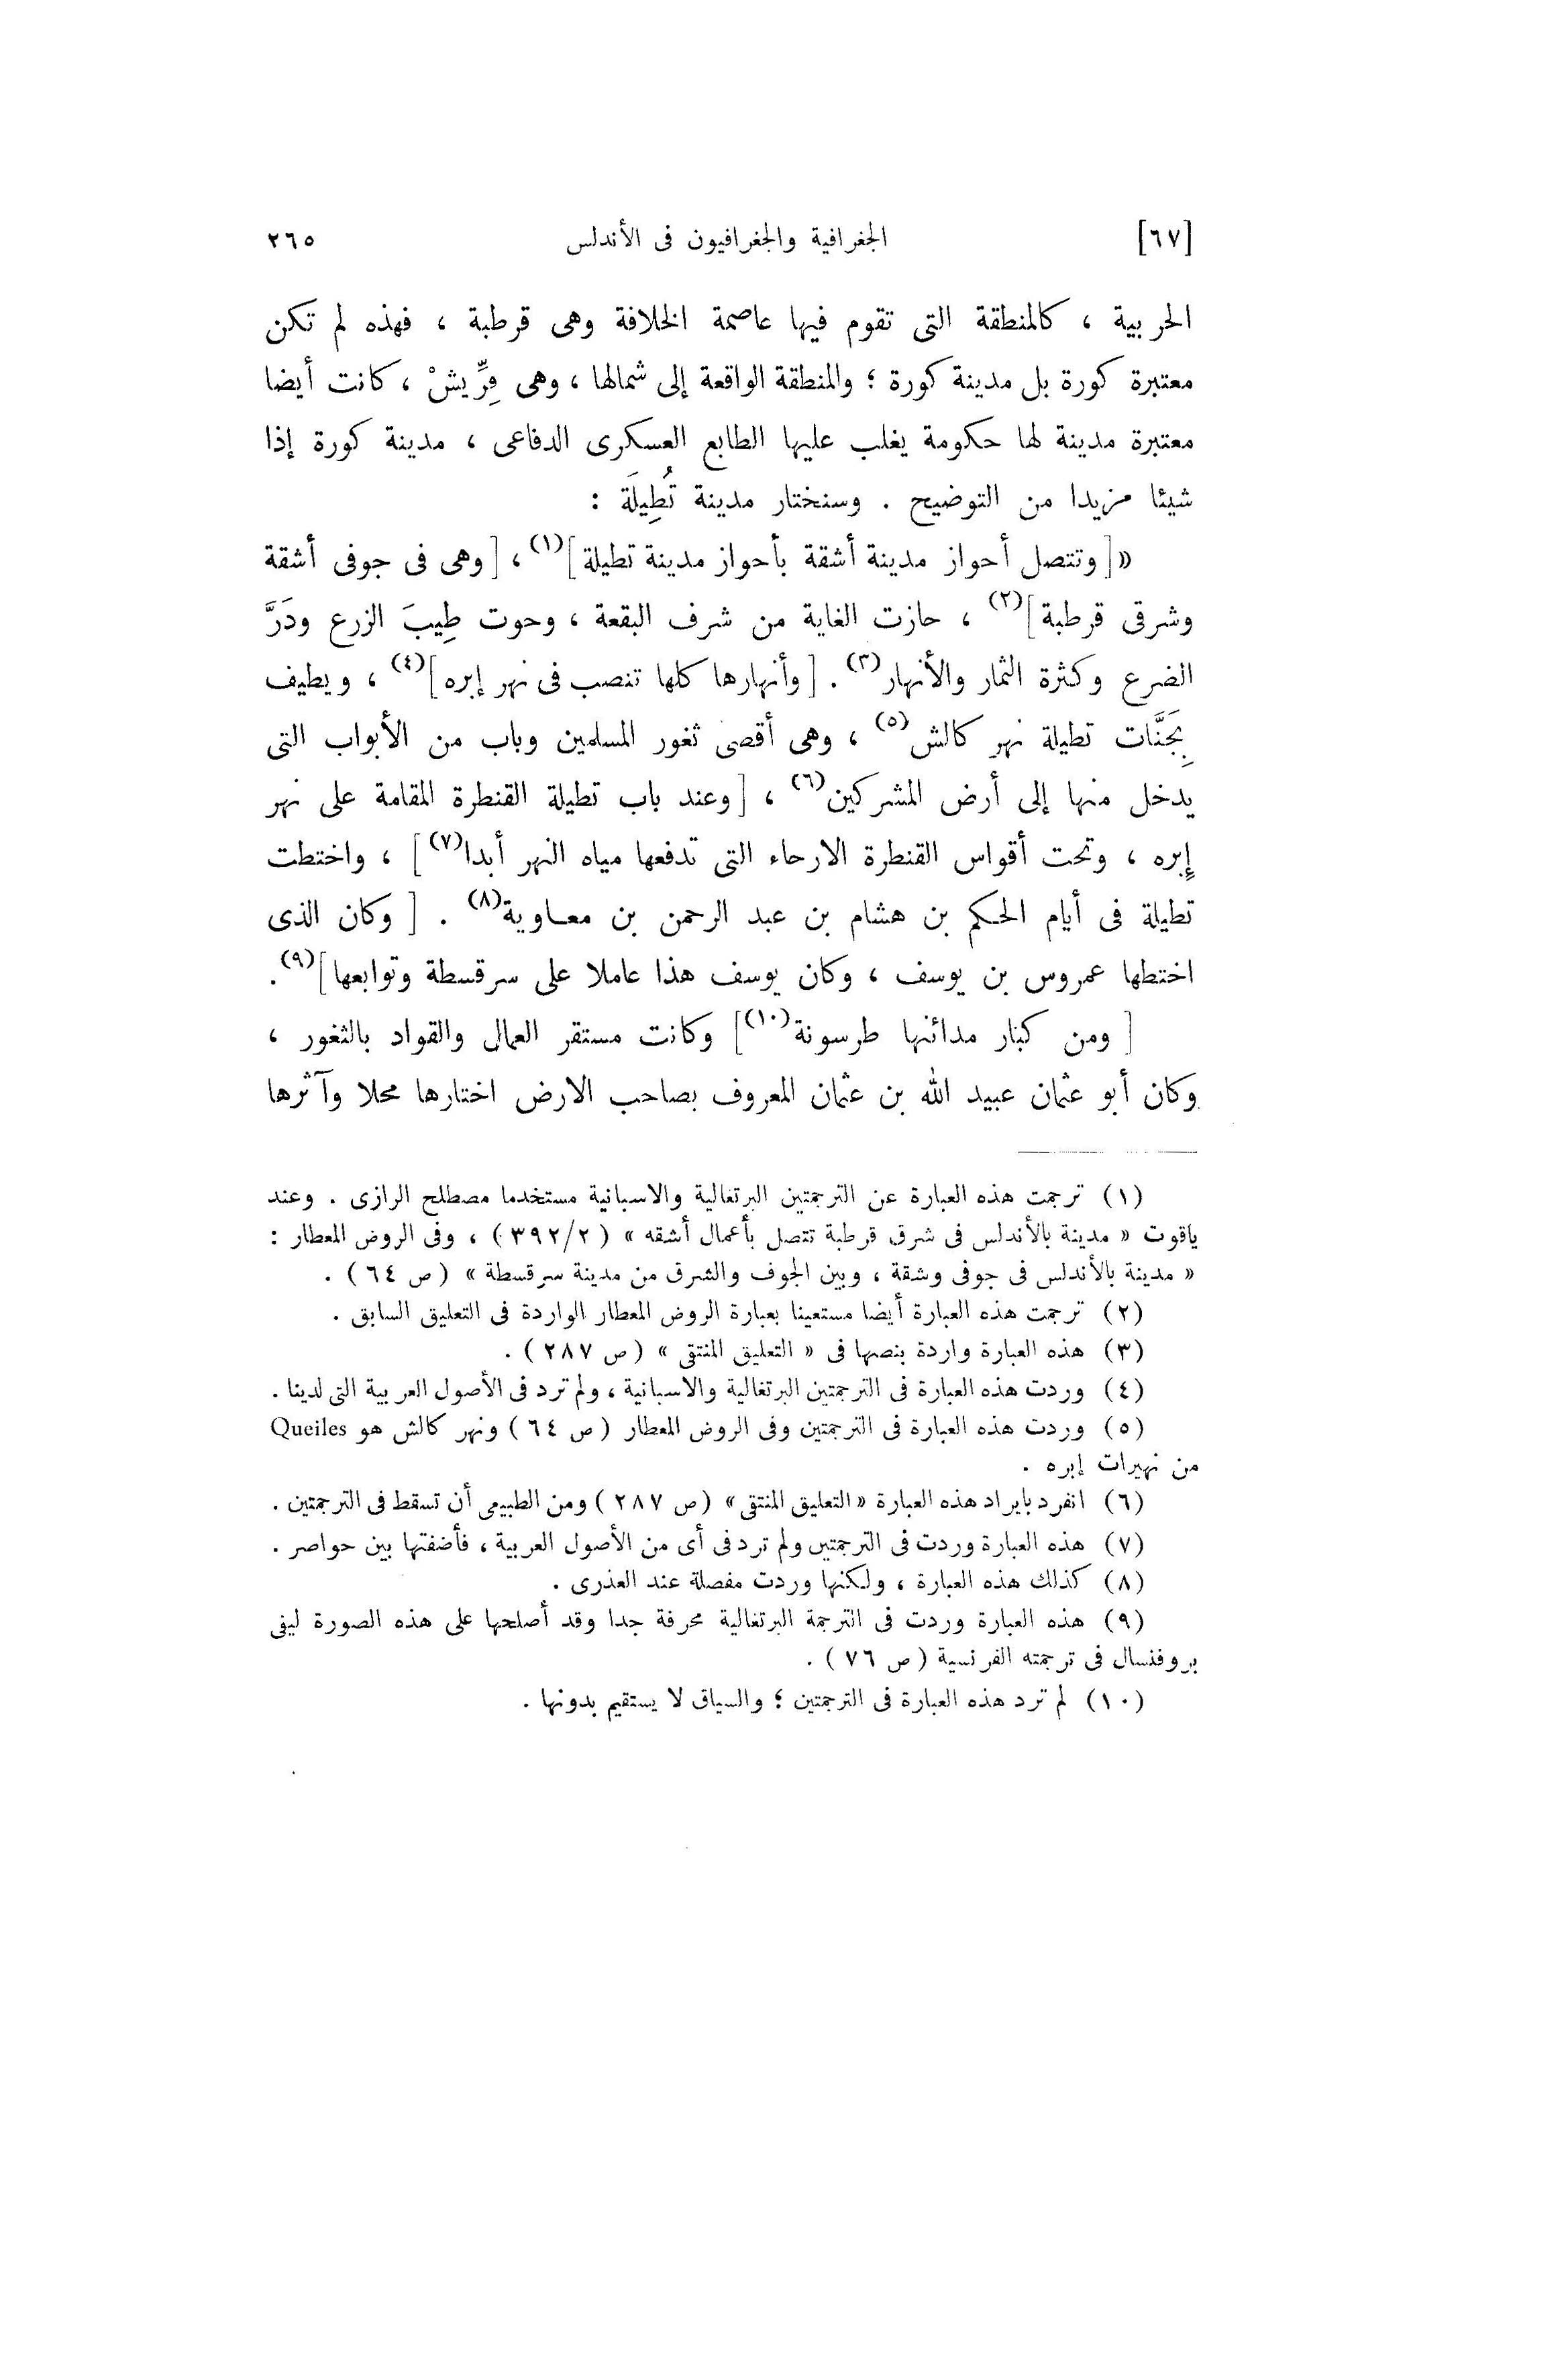 [٦٧] الجغرافية والجغرافيون فى الأندلس ٢٦٥
الحربية ، كالمنطقة التى تقوم فيها عاصمة الخلافة وهى قرطبة ، فهذه لم تكن
معتبرة كورة بل مدينة كورة ؛ والمنطقة الواقعة إلى شمالها ، وهى فِرِّيشْ ، كانت أيضا
معتبرة مدينة لها حكومة يغلب عليها الطابع العسكرى الدفاعى ، مدينة كورة إذا
شيئا مزيدا من التوضيح . وسنختار مدينة تُطِيلَة :
«[وتتصل أحواز مدينة أشقة بأحواز مدينة تطيلة](١) ، [وهى فى جوفى أشقة
وشرقى قرطبة](٢) ، حازت الغاية من شرف البقعة ، وحوت طِيبَ الزرع ودَرَّ
الضرع وكثرة الثمار والأنهار(٣) . [وأنهارها كلها تنصب فى نهر إبره](٤) ، ويطيف
بِجَنَّات تطيلة نهر كالش(٥) ، وهى أقصى ثغور المسلمين وباب من الأبواب التى
يدخل منها إلى أرض المشركين(٦) ، [وعند باب تطيلة القنطرة المقامة على نهر
إبره ، وتحت أقواس القنطرة الارحاء التى تدفعها مياه النهر أبدا(٧)] ، واختطت
تطيلة فى أيام الحكم بن هشام بن عبد الرحمن بن معاوية(٨) . [وكان الذى
اختطها عمروس بن يوسف ، وكان يوسف هذا عاملا على سرقسطة وتوابعها](٩).
[ومن كبار مدائنها طرسونة(١٠)] وكانت مستقر العمال والقواد بالثغور ،
وكان أبو عثمان عبيد الله بن عثمان المعروف بصاحب الارض اختارها محلا وآثرها
(١) ترجمت هذه العبارة عن الترجمتين البرتغالية والاسبانية مستخدما مصطلح الرازى . وعند
ياقوت « مدينة بالأندلس فى شرق قرطبة تتصل بأعمال أشقه » ( ٣٩٢/٢ ) ، وفى الروض المعطار :
« مدينة بالأندلس فى جوفى وشقة ، وبين الجوف والشرق من مدينة سرقسطة » ( ص ٦٤ ) .
(٢) ترجمت هذه العبارة أيضا مستعينا بعبارة الروض المعطار الواردة فى التعليق السابق .
(٣) هذه العبارة واردة بنصها فى « التعليق المنتقى » ( ص ٢٨٧ ) .
(٤) وردت هذه العبارة فى الترجمتين البرتغالية والاسبانية ، ولم ترد فى الأصول العربية التى لدينا .
(٥) وردت هذه العبارة فى الترجمتين وفى الروض المعطار ( ص ٦٤ ) ونهر كالش هو Queiles
من نهيرات إبره .
(٦) انفرد بايراد هذه العبارة «التعليق المنتقى» ( ص ٢٨٧ ) ومن الطبيعى أن تسقط فى الترجمتين .
(٧) هذه العبارة وردت فى الترجمتين ولم ترد فى أى من الأصول العربية ، فأضفتها بين حواصر .
(٨) كذلك هذه العبارة ، ولكنها وردت مفصلة عند العذرى .
(٩) هذه العبارة وردت فى الترجمة البرتغالية محرفة جدا وقد أصلحها على هذه الصورة ليفى
بروفنسال فى ترجمته الفرنسية ( ص ٧٦ ) .
(١٠) لم ترد هذه العبارة فى الترجمتين ؛ والسياق لا يستقيم بدونها .